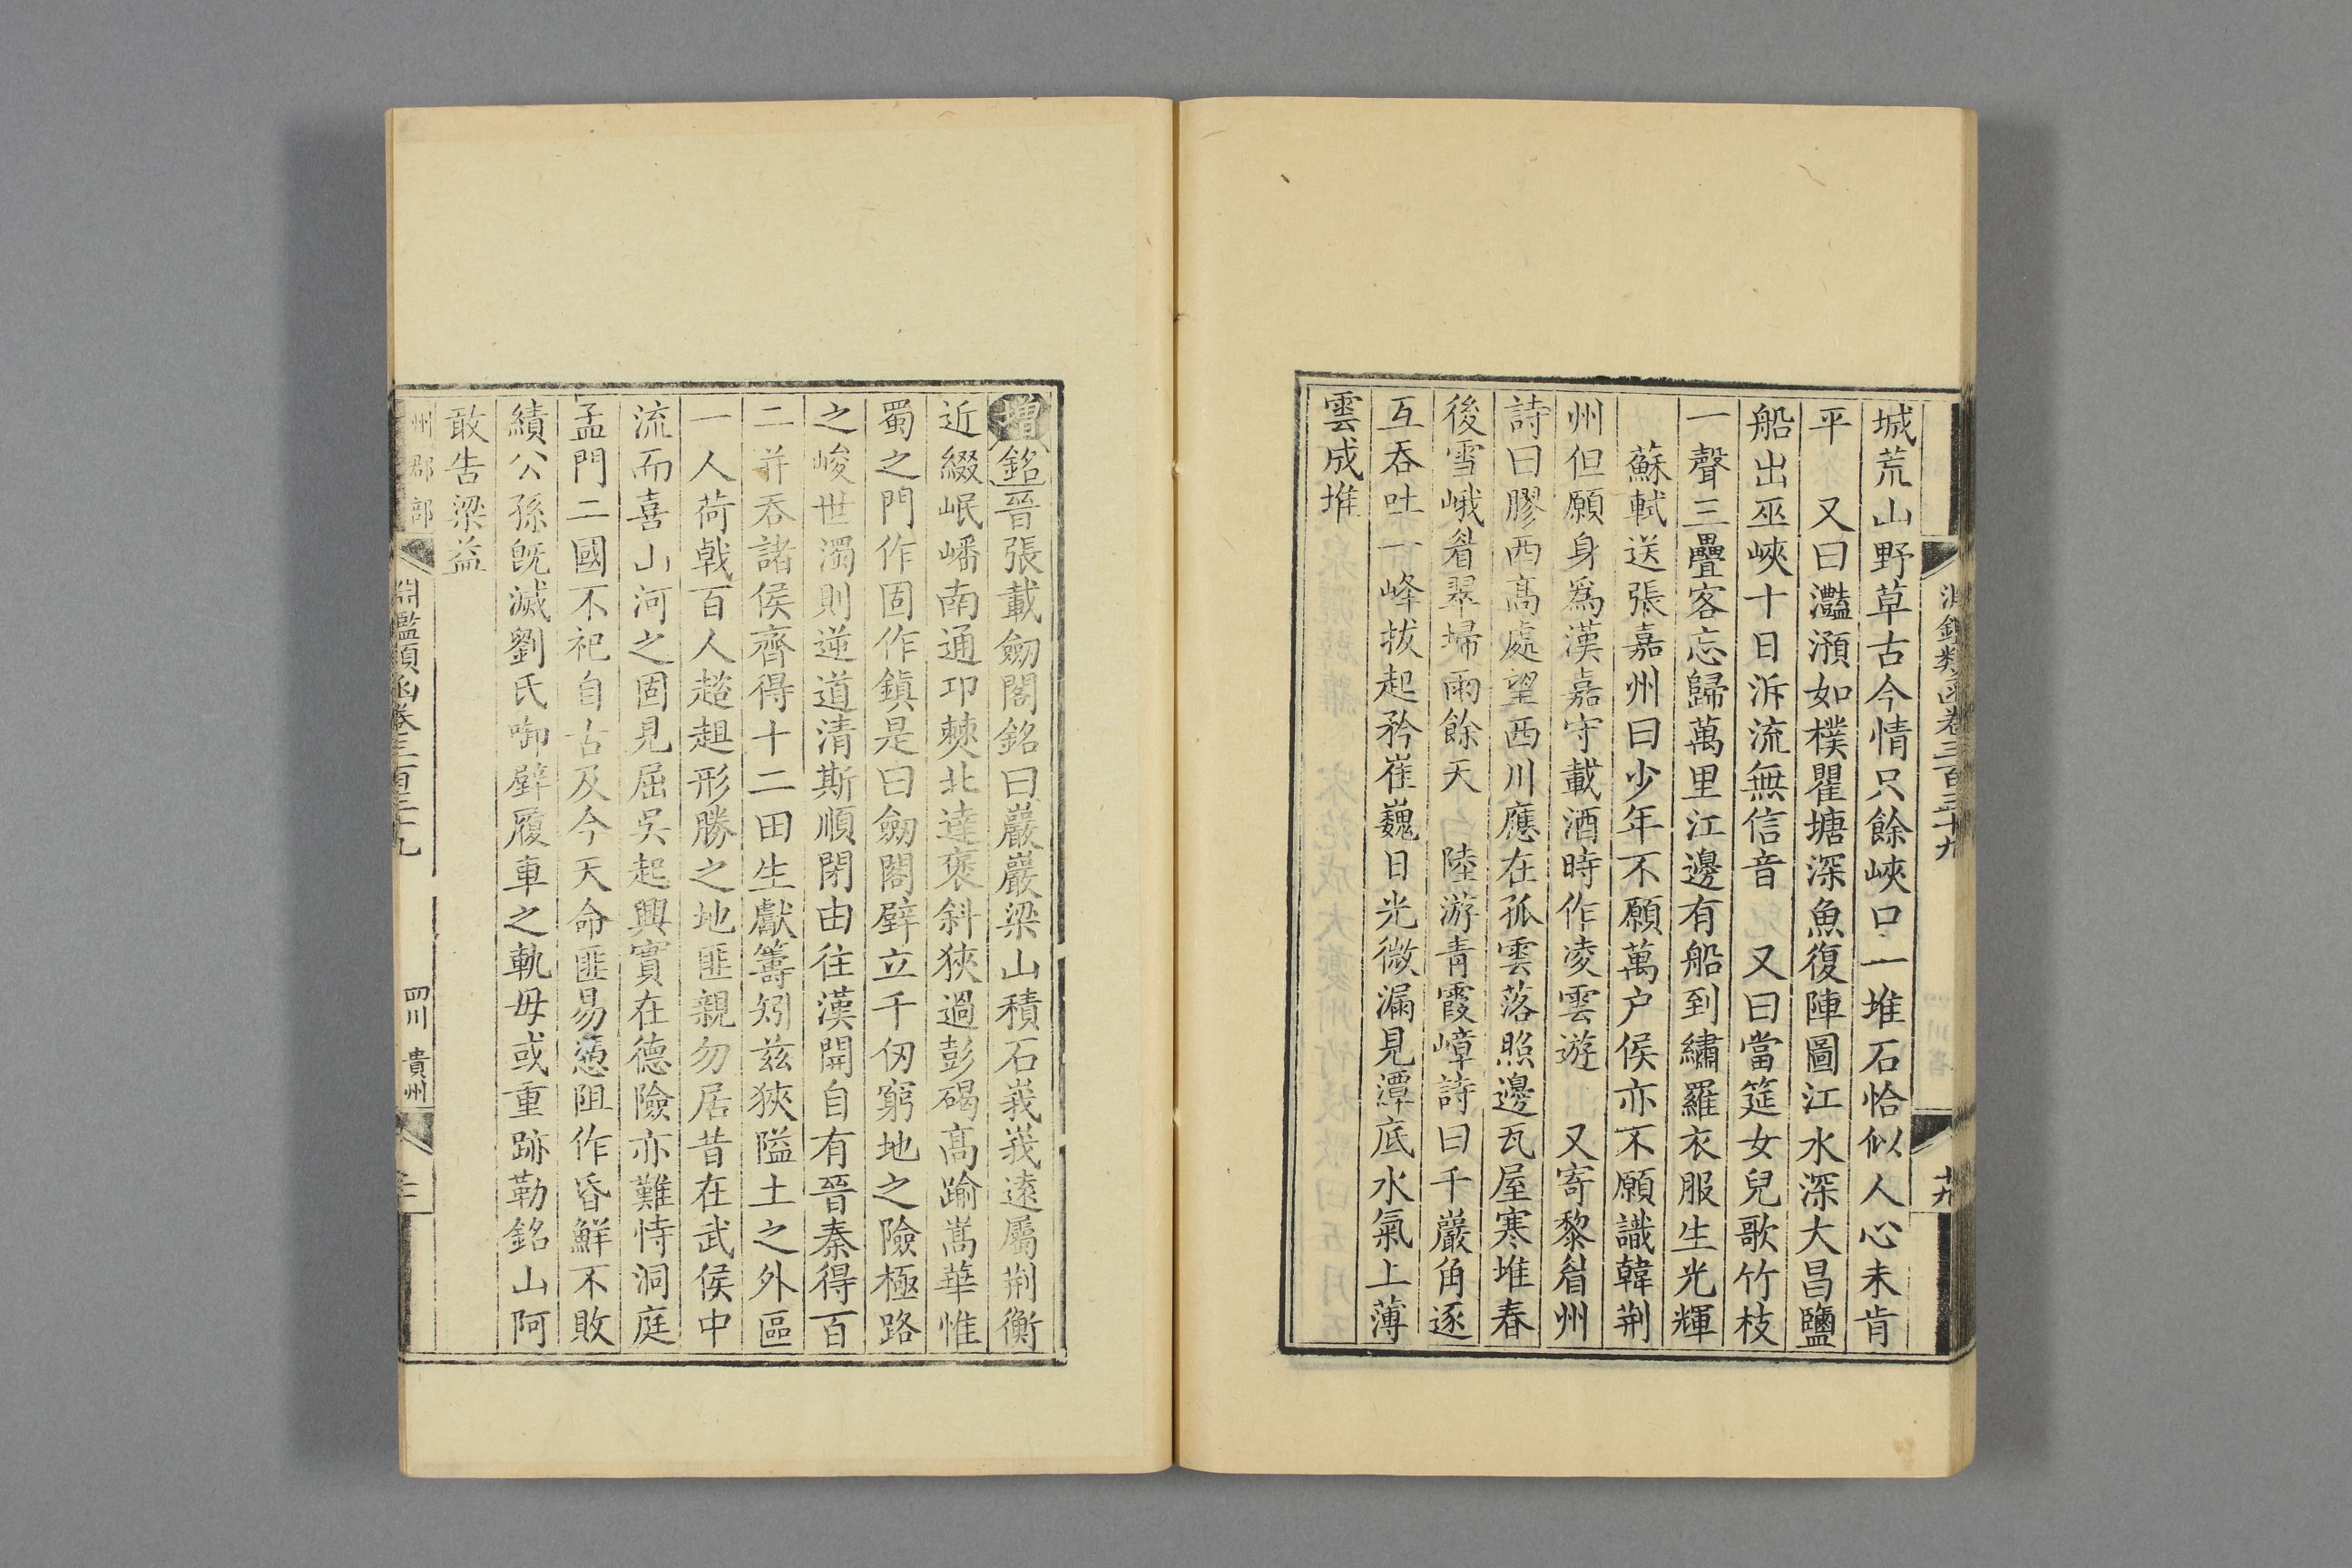 淵鑑類函卷三百三十九
十九
城荒山野草古今情只餘峽口一堆石恰似人心未肯
平　又曰灩澦如樸瞿塘深魚復陣圖江水深大昌鹽
船出巫峽十日泝流無信音　又曰當筵女兒歌竹枝
一聲三疊客忘歸萬里江邊有船到繡羅衣服生光輝
蘇軾送張嘉州曰少年不願萬户侯亦不願識韓荆
州但願身爲漢嘉守載酒時作凌雲遊　又寄黎眉州
詩曰膠西髙處望西川應在孤雲落照邊瓦屋寒堆春
後雪峨眉翠埽雨餘天　陸游青霞嶂詩曰千巖角逐
互吞吐一峰拔起矜崔巍日光微漏見潭底水氣上薄
雲成堆
增銘晉張載劒閣銘曰巖巖梁山積石峩峩逺屬荆衡
近綴岷嶓南通邛僰北達褒斜狹過彭碣髙踰嵩華惟
蜀之門作固作鎮是曰劒閣壁立千仞窮地之險極路
之峻世濁則逆道清斯順閉由往漢開自有晉秦得百
二并吞諸侯齊得十二田生獻籌矧兹狹隘土之外區
一人荷㦸百人趑趄形勝之地匪親勿居昔在武侯中
流而喜山河之固見屈吳起興實在德險亦難恃洞庭
孟門二國不祀自古及今天命匪易憑阻作昏鮮不敗
績公孫旣滅劉氏啣壁履車之軌毋或重跡勒銘山阿
敢告梁益
州郡部
淵鑑類函卷三百三十九
四川　貴州